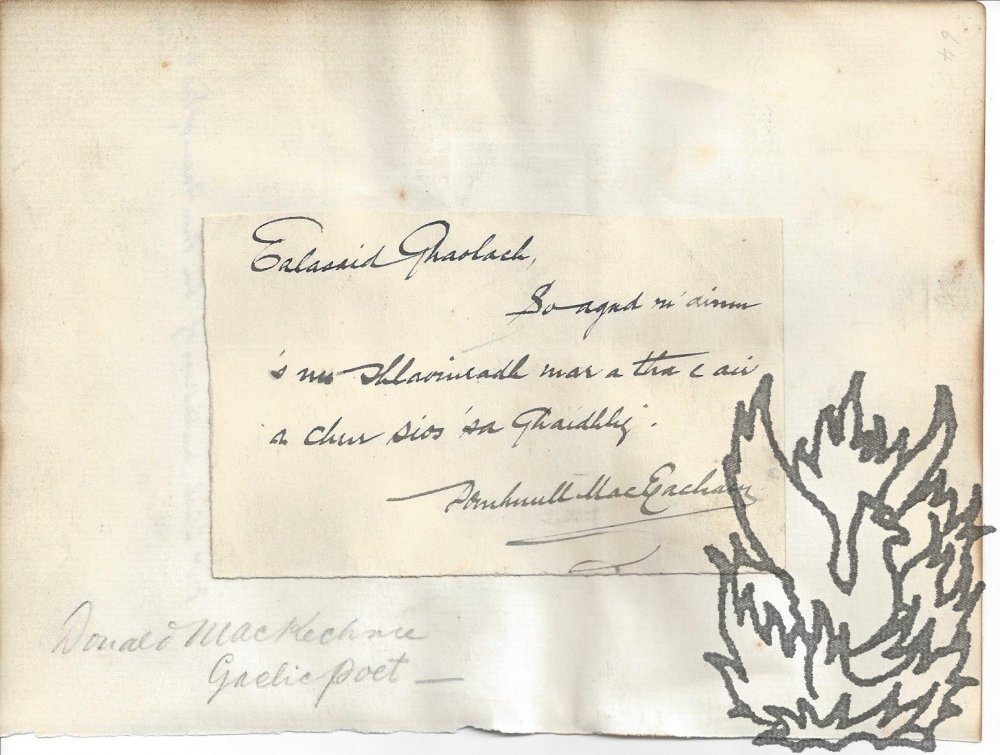 Ealasaid Ghaolach,
So agad m' ainm
's mo shloinneadh mar a tha e air
a chur sios 'sa Ghaidhlig.
Domhnull MacEacharn
Donald MacKechnie
Gaelic poet —